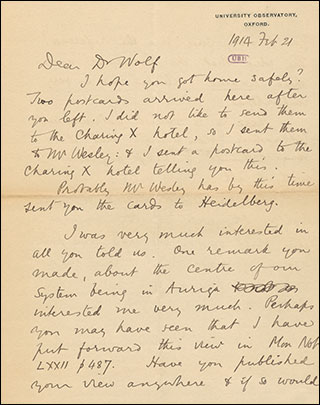 UNIVERSITY OBSERVATORY,
OXFORD.
1914 Feb 21
UBH
Dear Dr Wolf
I hope you got home safely?
Two postcards arrived here after
you left. I did not like to send them
to the Charing X hotel, so I sent them
to Mr Wesley: & I sent a postcard to the
Charing X hotel telling you this.
Probably Mr Wesley has by this time
sent you the cards to Heidelberg.
I was very much interested in
all you told us. One remark you
made, about the centre of our
System being in Auriga
interested me very much. Perhaps
you may have seen that I have
put forward this view in Mon Not
LXXII p 487. Have you published
your view anywhere & if so would